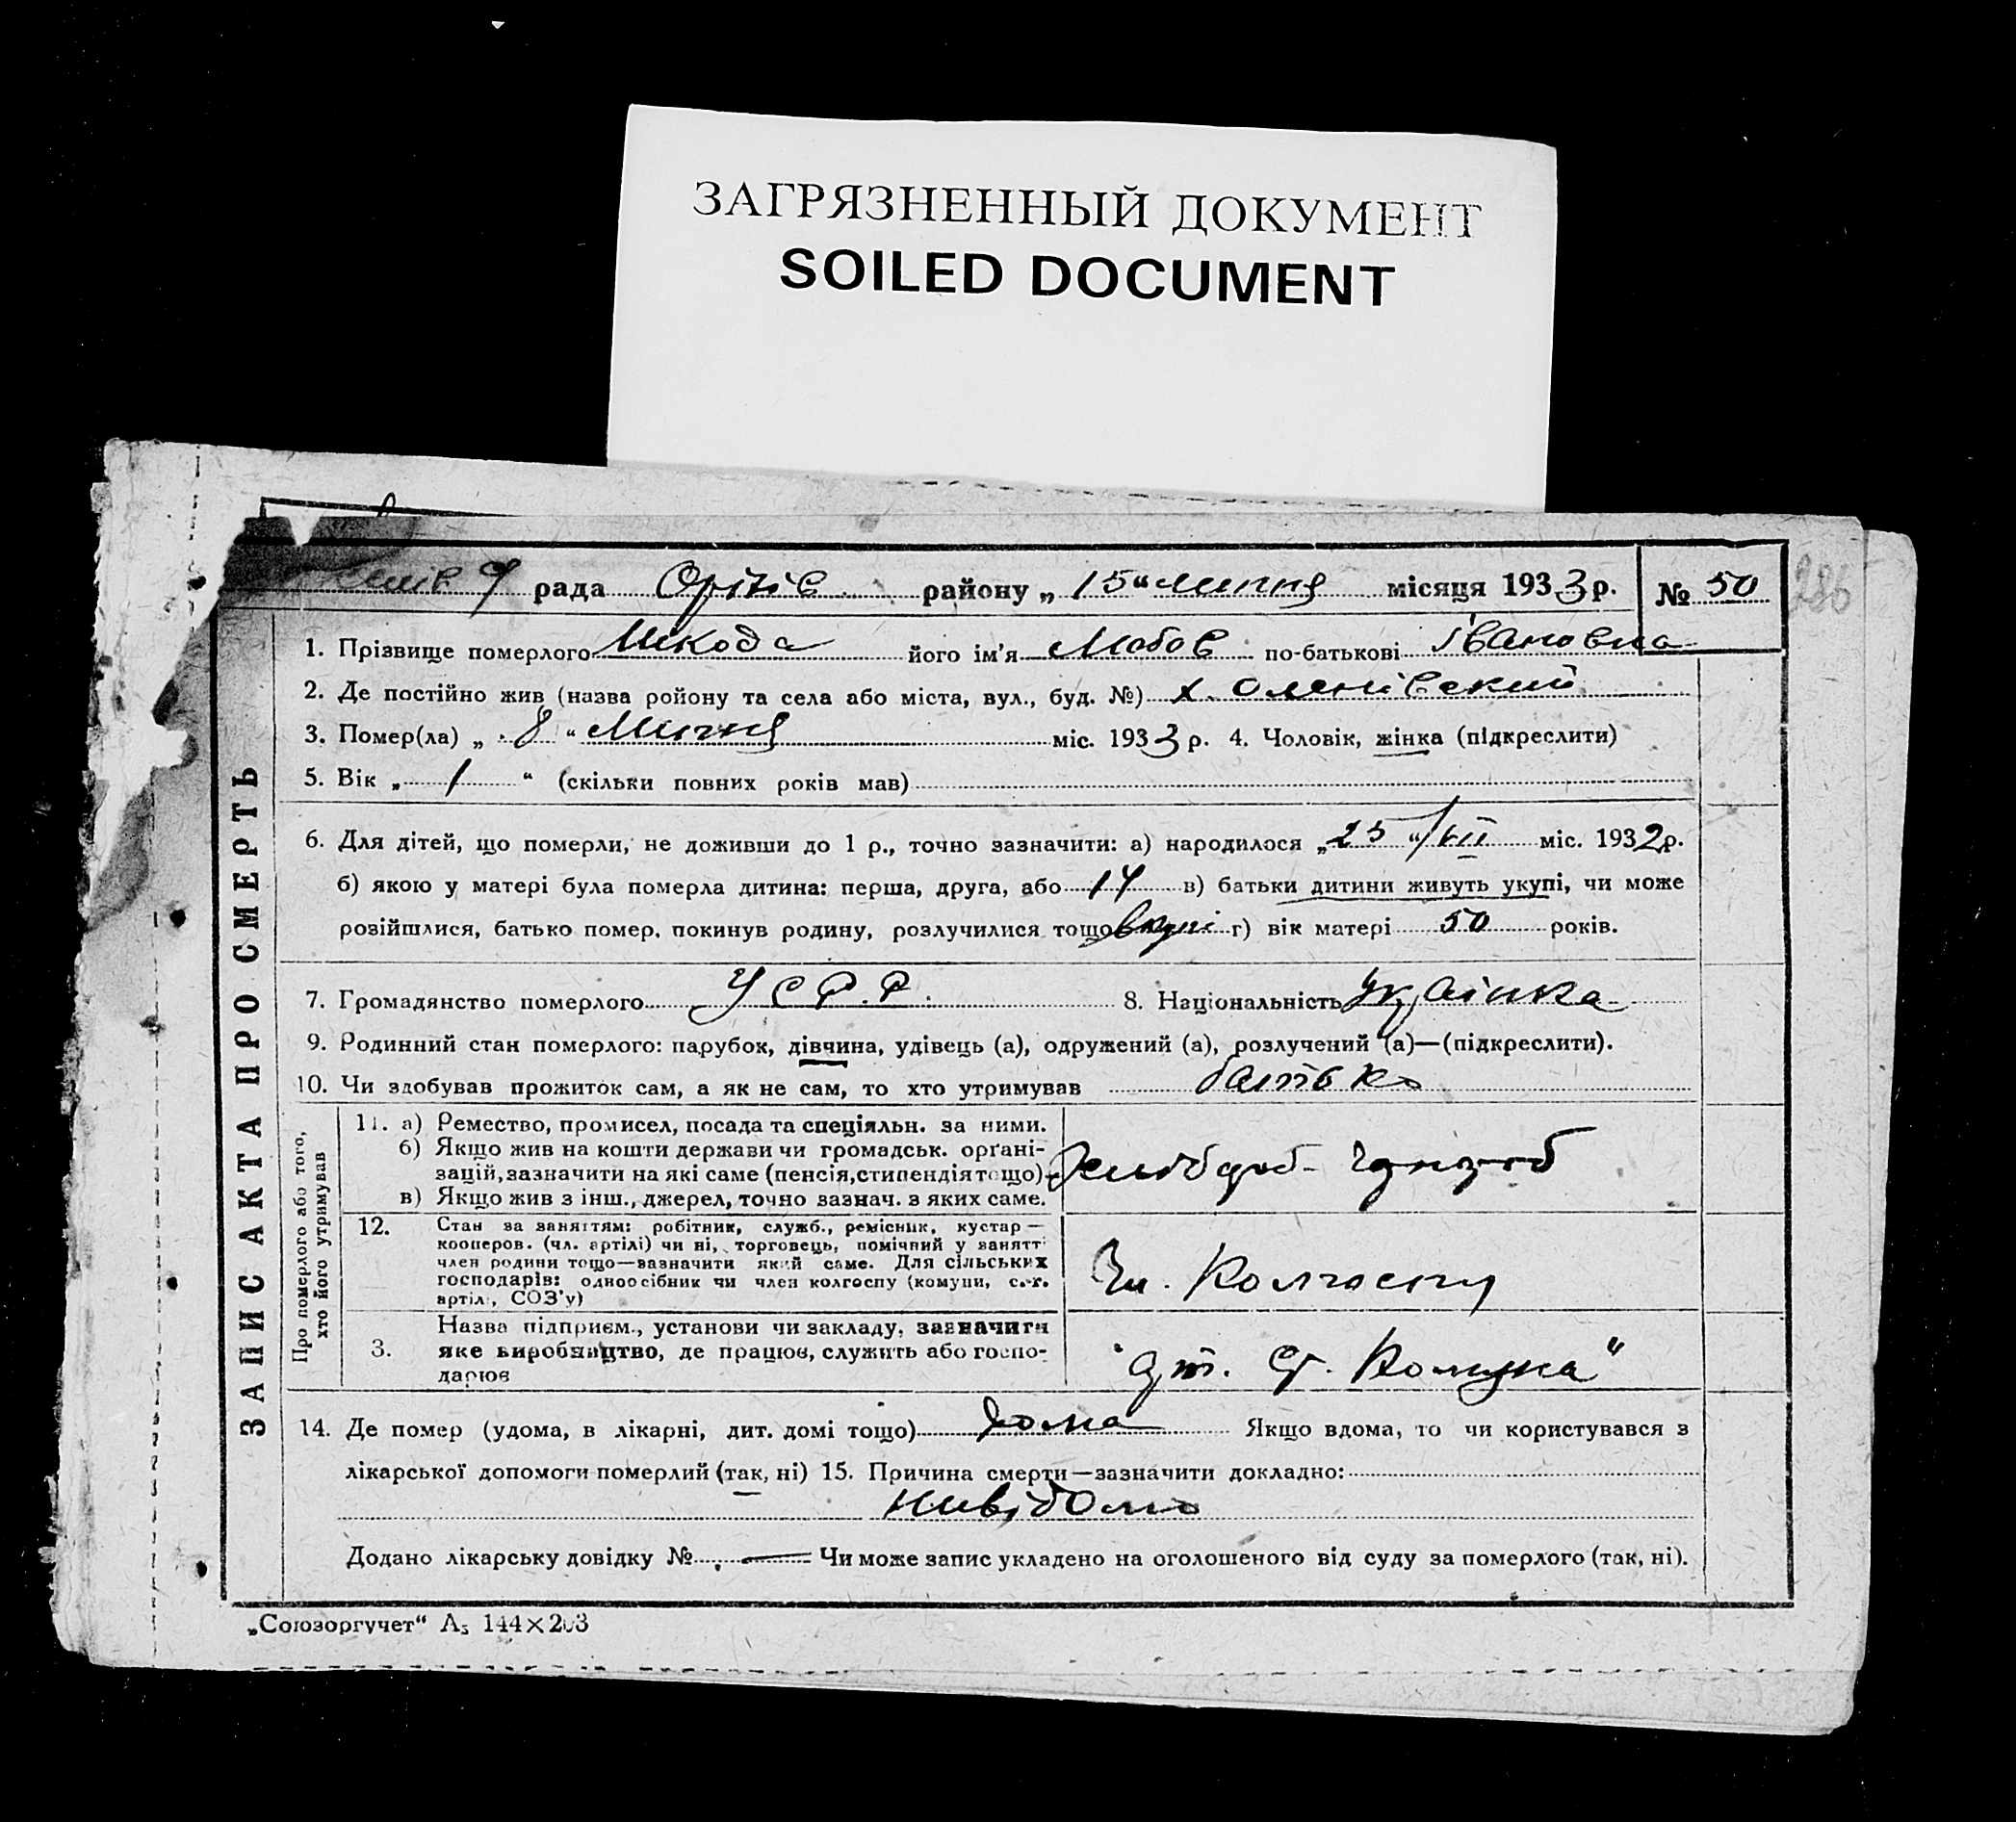 ЗАГРЯЗНЕННЫЙ ДОКУМЕНТ
SOILED DOCUMENT
рада Оріхів району „15“ липня місяця 1933 р. № 50
226
ЗАПИС АКТА ПРО СМЕРТЬ
1. Прізвище померлого Шкода його ім'я Любов по-батькові Івановна
2. Де постійно жив (назва ройону та села або міста, вул., буд. №) х. Оленівский
3. Помер(ла) „8“ Липня міс. 1933 р. 4. Чоловік, жінка (підкреслити)
5. Вік „1“ (скільки повних років мав)
6. Для дітей, що померли, не доживши до 1 р., точно зазначити: а) народилося „25“/VII міс. 1932 р.
б) якою у матері була померла дитина: перша, друга, або 14 в) батьки дитини живуть укупі, чи може
розійшлися, батько помер, покинув родину, розлучилися тощо вкупі г) вік матері 50 років.
7. Громадянство померлого УСРР. 8. Національність Українка
9. Родинний стан померлого: парубок, дівчина, удівець (а), одружений (а), розлучений (а)—(підкреслити).
10. Чи здобував прожиток сам, а як не сам, то хто утримував батько
Про померлого або того, хто його утримував
11. а) Ремество, промисел, посада та спеціяльн. за ними.
б) Якщо жив на кошти держави чи громадськ. орґані-
зацій, зазначити на які саме (пенсія, стипендія тощо)
в) Якщо жив з інш., джерел, точно зазнач. з яких саме.
12. Стан за заняттям: робітник, служб., ремісник, кустар—
кооперов. (чл. артілі) чи ні, торговець, помічний у занятті
член родини тощо—зазначити який саме. Для сільських
господарів: одноосібник чи член колгоспу (комуни, с.-г.
артілі, СОЗ'у)
Чл. Колгоспу
3. Назва підприєм., установи чи закладу, зазначити
яке виробництво, де працює, служить або госпо-
дарює
14. Де помер (удома, в лікарні, дит. домі тощо) дома Якщо вдома, то чи користувався з
лікарської допомоги померлий (так, ні) 15. Причина смерти—зазначити докладно:
нивідомо
Додано лікарську довідку № — Чи може запис укладено на оголошеного від суду за померлого (так, ні).
„Союзоргучет“ А₅ 144×203